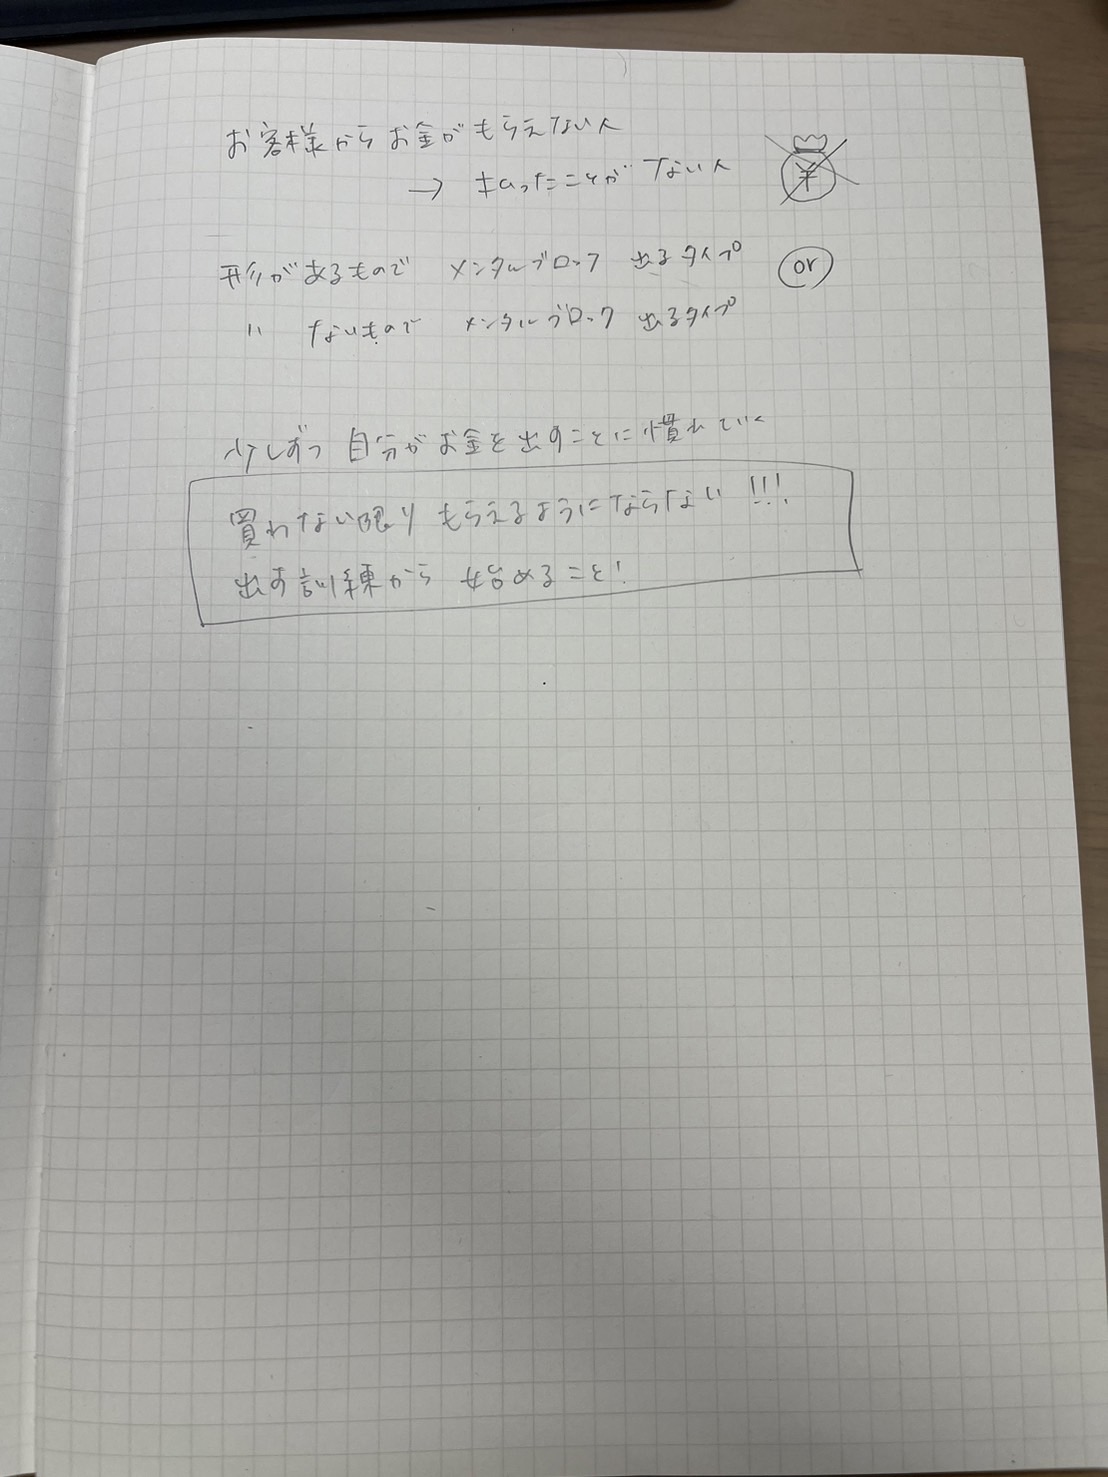 お客様からお金がもらえない人
→ 払ったことがない人
¥
形があるもので メンタルブロック 出るタイプ or
〃 ないもので メンタルブロック 出るタイプ
少しずつ 自分がお金を出すことに慣れていく
買わない限り もらえるようにならない!!!
出す訓練から 始めること!